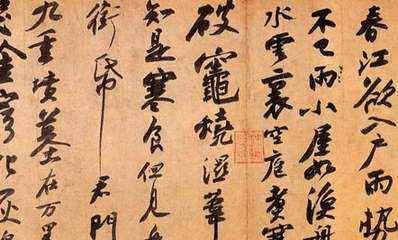 春江欲入戶雨勢
不已雨小屋如漁舟
水雲裏空庖煮寒
破竈燒濕葦
知是寒食但見烏
銜帋君門
九重墳墓在万里
塗窮死灰